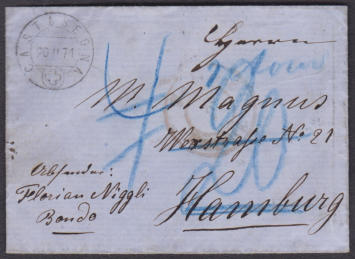 CASTASEGNA
20 II 71
Herrn
retour
M. Magnus
Wexstraße No 21
20
Hamburg
Absender:
Florian Niggli
Bondo